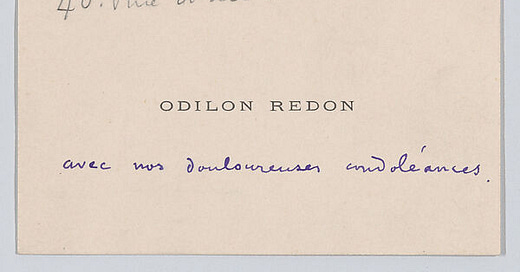 40. rue
ODILON REDON
avec nos douloureuses condoléances.